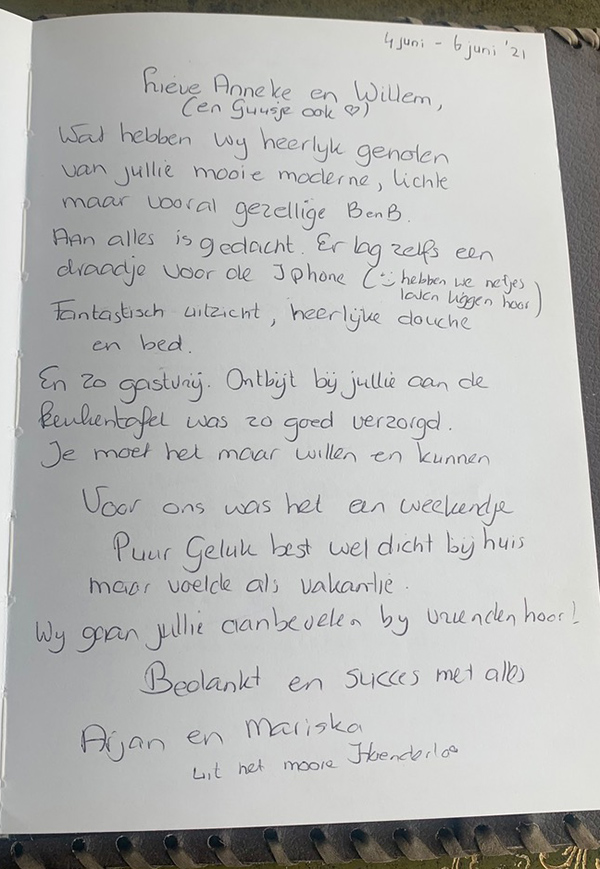 4 juni - 6 juni '21
Lieve Anneke en Willem,
(en Guusje ook ♡)
Wat hebben wy heerlyk genoten
van jullie mooie moderne, lichte
maar vooral gezellige BenB.
Aan alles is gedacht. Er lag zelfs een
draadje voor de Iphone (☺ hebben we netjes
laten liggen hoor)
Fantastisch uitzicht, heerlijke douche
en bed.
En zo gastvrij. Ontbijt bij jullie aan de
keukentafel was zo goed verzorgd.
Je moet het maar willen en kunnen
Voor ons was het een weekendje
Puur Geluk best wel dicht bij huis
maar voelde als vakantie.
Wy gaan jullie aanbevelen by vrienden hoor!
Bedankt en succes met alles
Arjan en Mariska
uit het mooie Hoenderloo